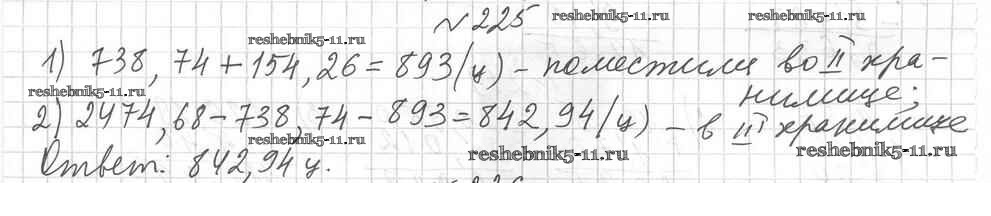 №225 reshebnik5-11.ru reshebnik5-11.ru
reshebnik5-11.ru
1) 738,74+154,26=893(ц) - поместили во II хра-
reshebnik5-11.ru нилище;
2) 2474,68-738,74-893=842,94(ц) - в III хранилище
reshebnik5-11.ru
Ответ: 842,94 ц. reshebnik5-11.ru reshebnik5-11.ru